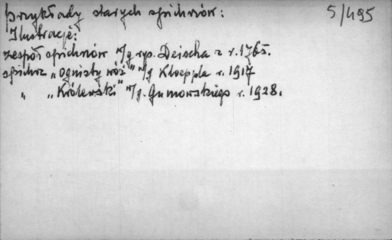 przykłady starych spichrzów: 5/495
Ilustracje:
zespół spichrzów w/g rys. Deischa z r. 1765.
spichrz „ognisty wóz” w/g Kloeppla r. 1917
„ „Królewski” w/g. Gumowskiego r. 1928.